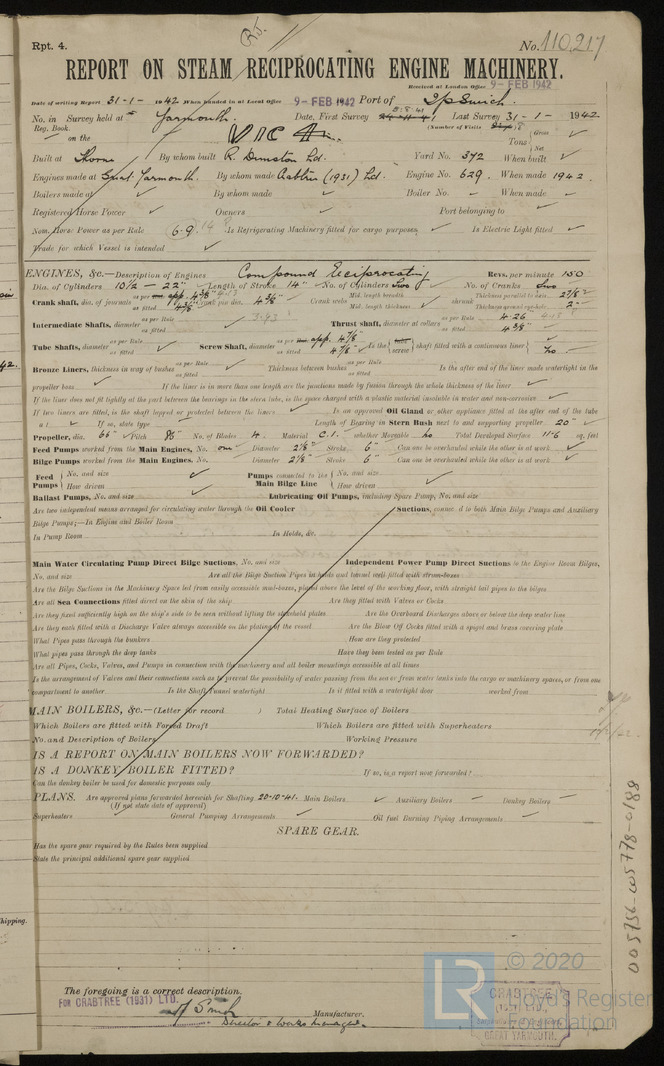 Rpt. 4.
No. 110,217
REPORT ON STEAM RECIPROCATING ENGINE MACHINERY.
Received at London Office 9-FEB 1942
Date of writing Report 31-1-1942 When handed in at Local Office 9-FEB 1942 Port of Ipswich.
No. in Survey held at Yarmouth. Date, First Survey Last Survey 31-1-1942
Reg. Book. (Number of Visits
on the VIC 4. Tons Gross Net
Built at Thorne By whom built R. Dunston Ld. Yard No. 372 When built
Engines made at Great Yarmouth. By whom made Crabtree (1931) Ld. Engine No. 629 When made 1942.
Boilers made at By whom made Boiler No. When made
Registered Horse Power Owners Port belonging to
Nom. Horse Power as per Rule 69 Is Refrigerating Machinery fitted for cargo purposes Is Electric Light fitted
Trade for which Vessel is intended
ENGINES, &c.—Description of Engines Compound Reciprocating Revs. per minute 150
Dia. of Cylinders 10½ — 22" Length of Stroke 14" No. of Cylinders two No. of Cranks two
Crank shaft, dia. of journals as per Rule app. 4⅜" as fitted Crank pin dia. 4⅜" Crank webs Mid. length breadth Mid. length thickness shrunk Thickness parallel to axis 2⅞" Thickness around eyehole 2"
Intermediate Shafts, diameter as per Rule as fitted 3.93 Thrust shaft, diameter at collars as per Rule 4.26 as fitted 4⅜"
Tube Shafts, diameter as per Rule as fitted Screw Shaft, diameter as per Rule app. 4⅞" as fitted 4⅞" Is the tube screw shaft fitted with a continuous liner no.
Bronze Liners, thickness in way of bushes as per Rule as fitted Thickness between bushes as per Rule as fitted Is the after end of the liner made watertight in the
propeller boss If the liner is in more than one length are the junctions made by fusion through the whole length of the liner
If the liner does not fit tightly at the part between the bearings in the stern tube, is the space charged with a plastic material insoluble in water and non-corrosive
If two liners are fitted, is the shaft lapped or protected between the liners Is an approved Oil Gland or other appliance fitted at the after end of the tube
If so, state type Length of Bearing in Stern Bush next to and supporting propeller 20"
Propeller, dia. 66" Pitch 86" No. of Blades 4. Material C.I. whether Moveable no Total Developed Surface 11.6 sq. feet
Feed Pumps worked from the Main Engines, No. one Diameter 2⅛" Stroke 6" Can one be overhauled while the other is at work
Bilge Pumps worked from the Main Engines, No. Diameter 2⅛" Stroke 6" Can one be overhauled while the other is at work
Feed Pumps No. and size How driven Pumps connected to the Main Bilge Line No. and size How driven
Ballast Pumps, No. and size Lubricating Oil Pumps, including Spare Pump, No. and size
Are two independent means arranged for circulating water through the Oil Cooler Suctions, connected to both Main Bilge Pumps and Auxiliary
Bilge Pumps;—In Engine and Boiler Room
In Pump Room In Holds, &c.
Main Water Circulating Pump Direct Bilge Suctions, No. and size Independent Power Pump Direct Suctions to the Engine Room Bilges,
No. and size Are all the Bilge Suction Pipes in holds and tunnel well fitted with strum-boxes
Are the Bilge Suctions in the Machinery Space led from easily accessible mud-boxes, placed above the level of the working floor, with straight tail pipes to the bilges
Are all Sea Connections fitted direct on the skin of the ship Are they fitted with Valves or Cocks
Are they fixed sufficiently high on the ship's side to be seen without lifting the stokehold plates Are the Overboard Discharges above or below the deep water line
Are they each fitted with a Discharge Valve always accessible on the plating of the vessel Are the Blow Off Cocks fitted with a spigot and brass covering plate
What Pipes pass through the bunkers How are they protected
What pipes pass through the deep tanks Have they been tested as per Rule
Are all Pipes, Cocks, Valves, and Pumps in connection with the machinery and all boiler mountings accessible at all times
Is the arrangement of Valves and their connections such as to prevent the possibility of water passing from the sea or from water tanks into the cargo or machinery spaces, or from one
compartment to another Is the Shaft Tunnel watertight Is it fitted with a watertight door worked from
MAIN BOILERS, &c.—(Letter for record ) Total Heating Surface of Boilers
Which Boilers are fitted with Forced Draft Which Boilers are fitted with Superheaters
No. and Description of Boilers Working Pressure
IS A REPORT ON MAIN BOILERS NOW FORWARDED?
IS A DONKEY BOILER FITTED? If so, is a report now forwarded?
Can the donkey boiler be used for domestic purposes only
PLANS. Are approved plans forwarded herewith for Shafting 20-10-41. Main Boilers Auxiliary Boilers Donkey Boilers
(If not state date of approval)
Superheaters General Pumping Arrangements Oil fuel Burning Piping Arrangements
SPARE GEAR.
Has the spare gear required by the Rules been supplied
State the principal additional spare gear supplied
The foregoing is a correct description.
FOR CRABTREE (1931) LTD.
Manufacturer.
Director & Works Manager.
CRABTREE (1931) LTD., GREAT YARMOUTH.
005756-005778-0188
hipping.
© 2020
LR Lloyd's Register
Foundation